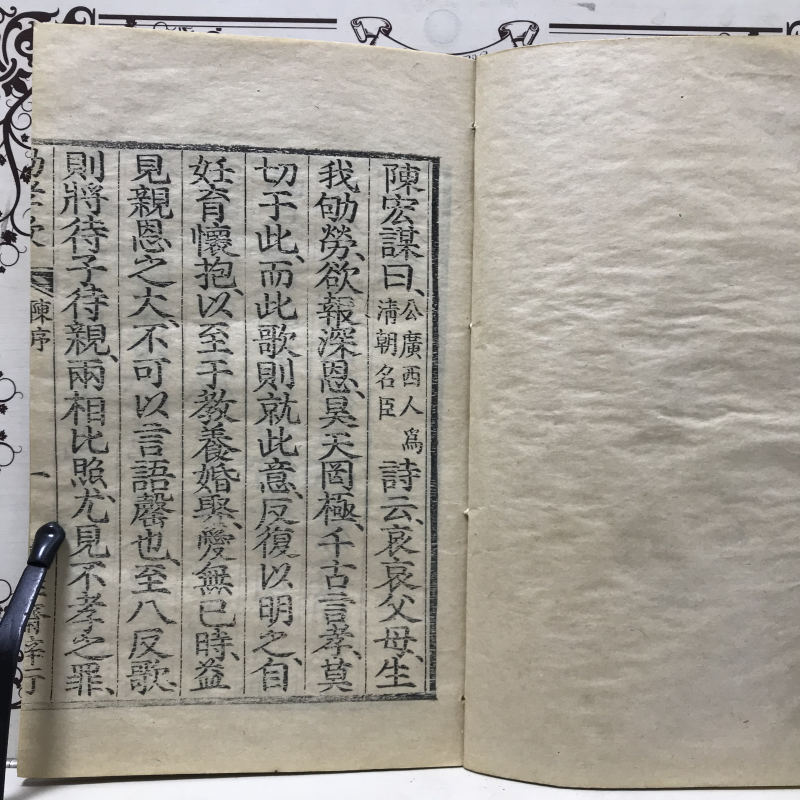 陳宏謀曰、公廣西人爲淸朝名臣詩云、哀哀父母、生
我劬勞、欲報深恩、昊天罔極、千古言孝、莫
切于此、而此歌則就此意、反復以明之、自
妊育懷抱、以至于教養婚娶、愛無已時、益
見親恩之大、不可以言語罄也、至八反歌、
則將待子待親、兩相比照、尤見不孝之罪、
陳序
一